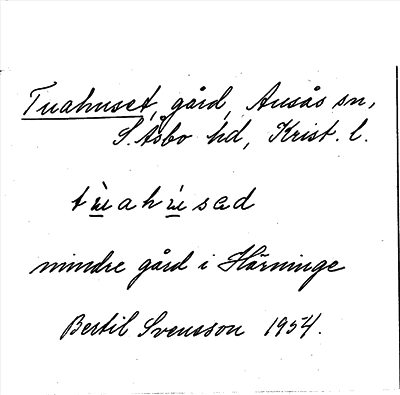 Tuahuset, gård, Ausås sn,
S. Åsbo hd, Krist. l.
tùahúsəd
mindre gård i Härninge
Bertil Svensson 1954.